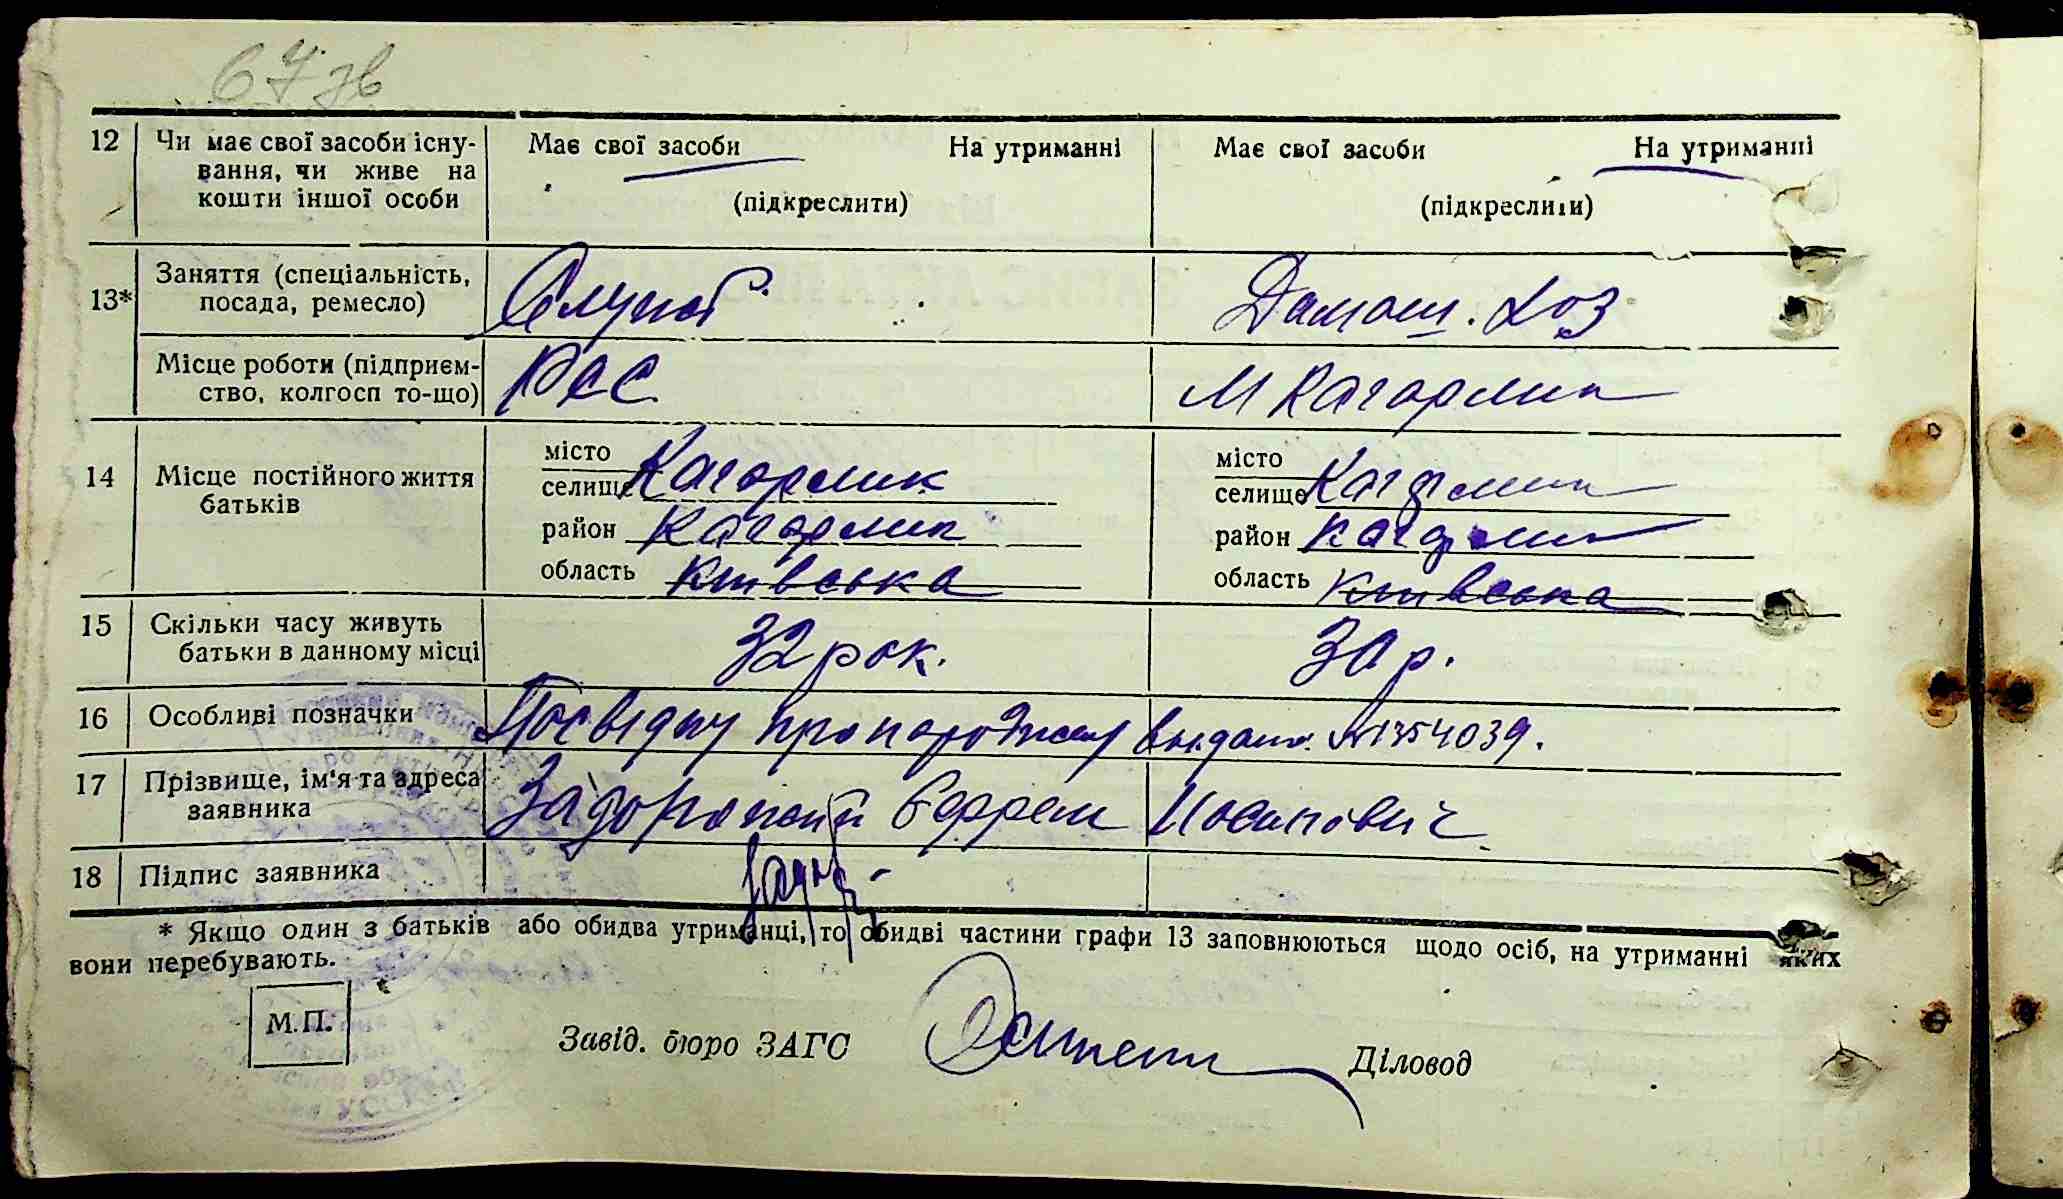 12 Чи має свої засоби існу- Має свої засоби На утриманні Має свої засоби На утриманні
вання, чи живе на
кошти іншої особи (підкреслити) (підкреслити)
13* Заняття (спеціальність,
посада, ремесло) Домош. хоз
Місце роботи (підприєм- РЄС М Кагорлик
ство, колгосп то-що)
14 Місце постійного життя місто Кагорлик місто Кагорлик
батьків селище селище
район Кагорлик район Кагорлик
область Київська область Київська
15 Скільки часу живуть 32 рок. 30 р.
батьки в данному місці
16 Особливі позначки Посвідку про народження видано № 1354039.
17 Прізвище, ім'я та адреса Задорожній Єфрем
заявника
18 Підпис заявника
* Якщо один з батьків або обидва утриманці, то обидві частини графи 13 заповнюються щодо осіб, на утриманні яких
вони перебувають.
М.П.
Завід. бюро ЗАГС Діловод